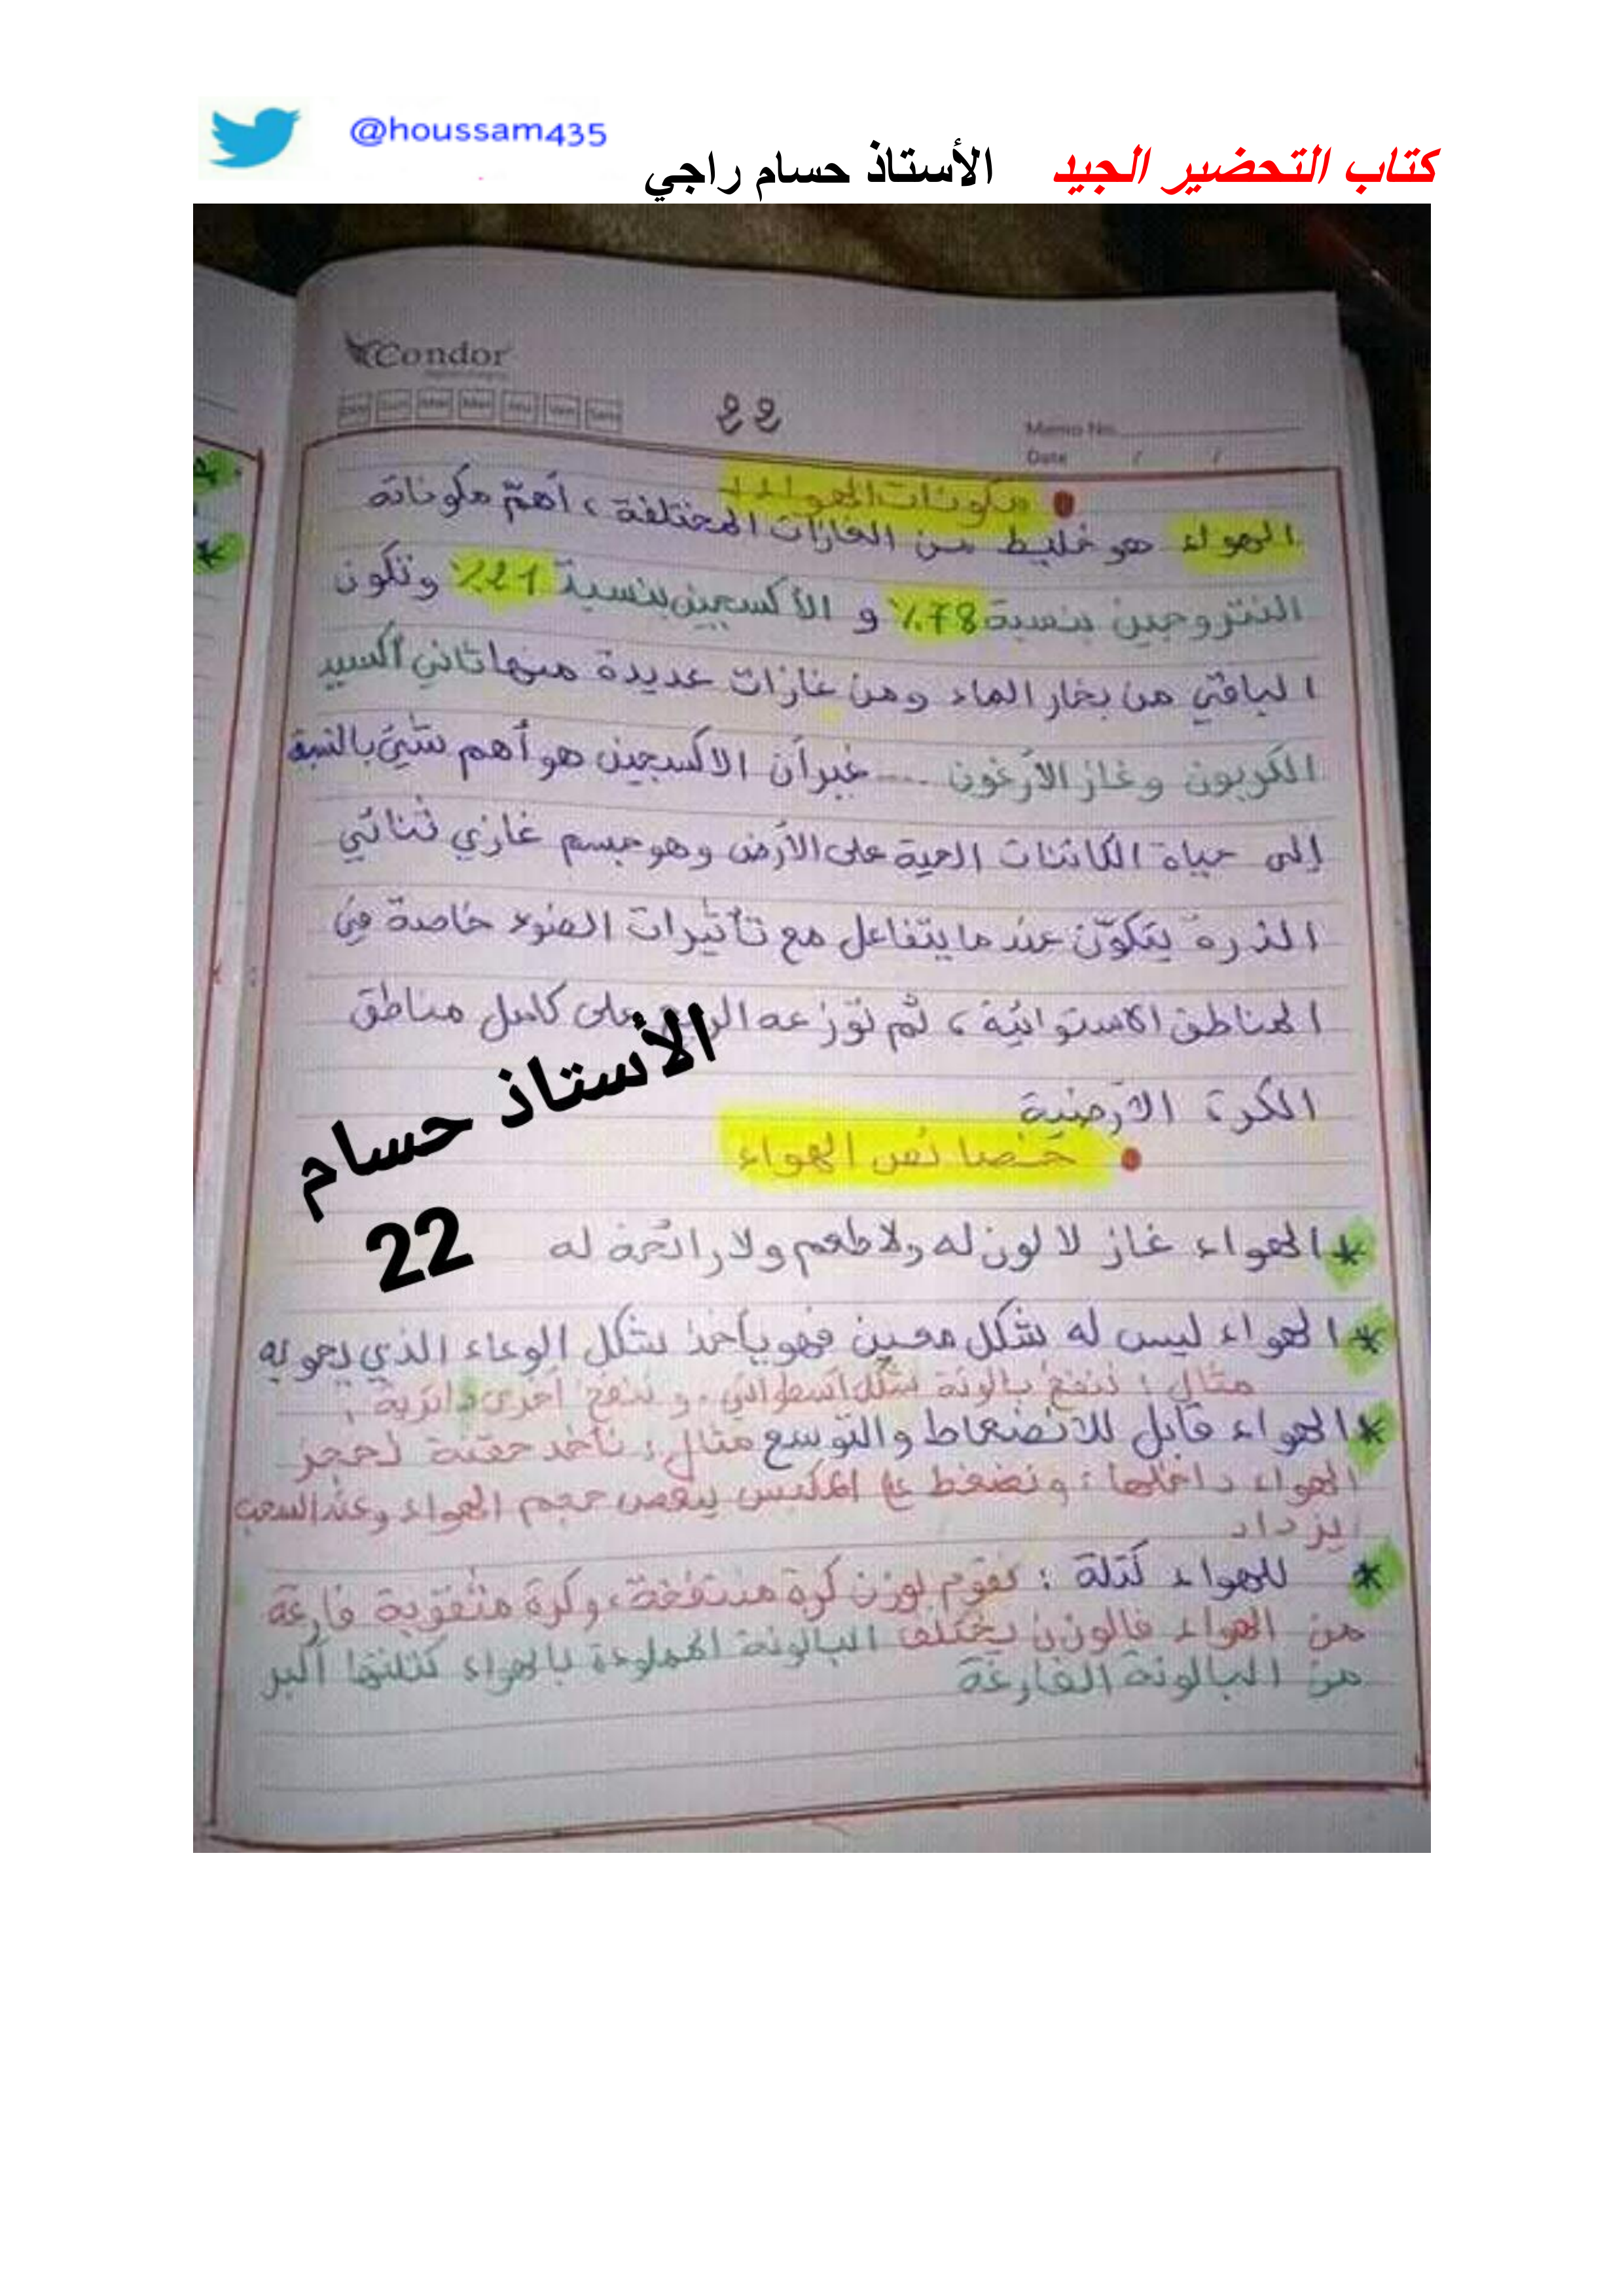 @houssam435
كتاب التحضير الجيد الأستاذ حسام راجي
Condor
Dim Lun Mar Mer Jeu Ven Sam
22
Memo No.
Date / /
مكونات الهواء
الهواء هو خليط من الغازات المختلفة، أهمّ مكوناته
النتروجين بنسبة 78٪ و الأكسجين بنسبة 21٪ وتكون
الباقي من بخار الماء ومن غازات عديدة منها ثاني أكسيد
الكربون وغاز الأرغون .... غير أن الاكسجين هو أهم شيئ بالنسبة
إلى حياة الكائنات الحية على الأرض وهو جسم غازي ثنائي
الذرة يتكوّن عندما يتفاعل مع تأثيرات الضوء خاصة في
المناطق الاستوائية، ثم توزعه الرياح على كامل مناطق
الكرة الأرضية
الأستاذ حسام
22
خصائص الهواء
* الهواء غاز لا لون له ولا طعم ولا رائحة له
* الهواء ليس له شكل معين فهو يأخذ شكل الوعاء الذي يحويه
مثال: ننفخ بالونة شكل أسطواني، و ننفخ أخرى دائرية.
* الهواء قابل للانضغاط والتوسع مثال: نأخذ حقنة لحجز
الهواء داخلها: ونضغط على المكبس ينقص حجم الهواء وعند السحب
يزداد
* للهواء كتلة: نقوم بوزن كرة منتفخة، وكرة مثقوبة فارغة
من الهواء فالوزن يختلف البالونة المملوءة بالهواء كتلتها أكبر
من البالونة الفارغة